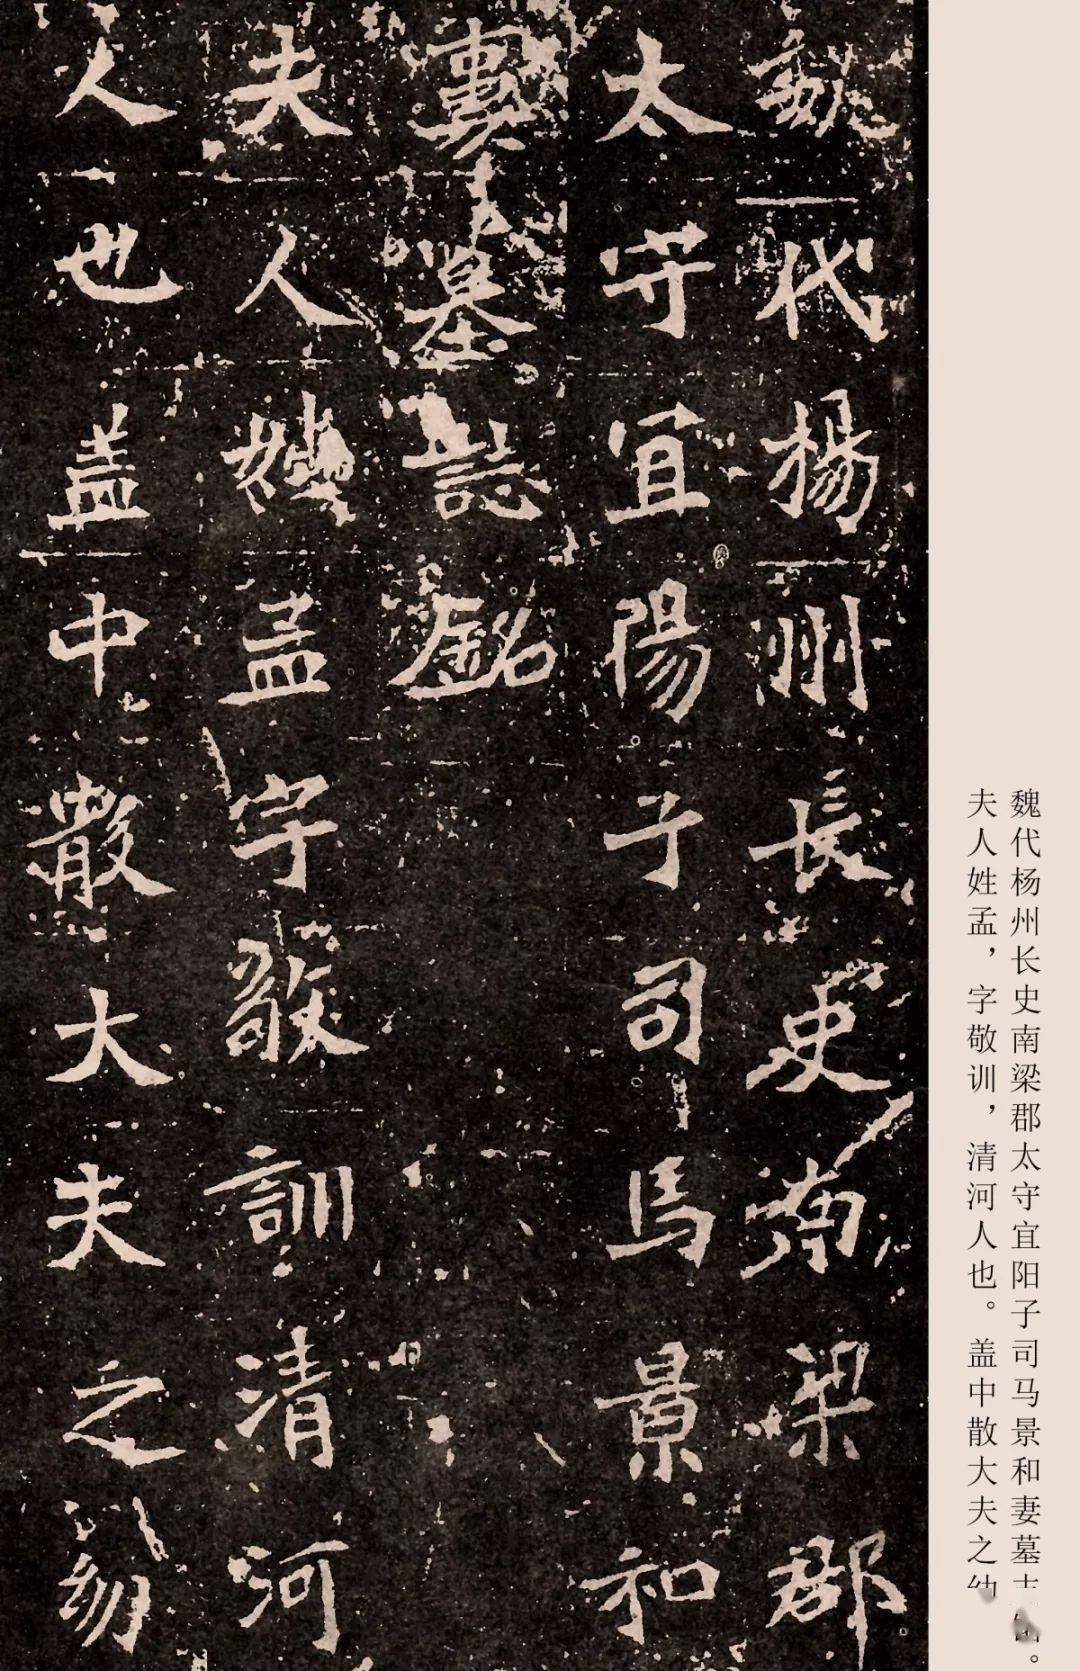 魏代楊州長史南梁郡
太守宜陽子司馬景和
妻墓誌銘
夫人姓孟字敬訓清河
人也盖中散大夫之幼
魏代杨州长史南梁郡太守宜阳子司马景和妻墓志铭。
夫人姓孟，字敬训，清河人也。盖中散大夫之幼